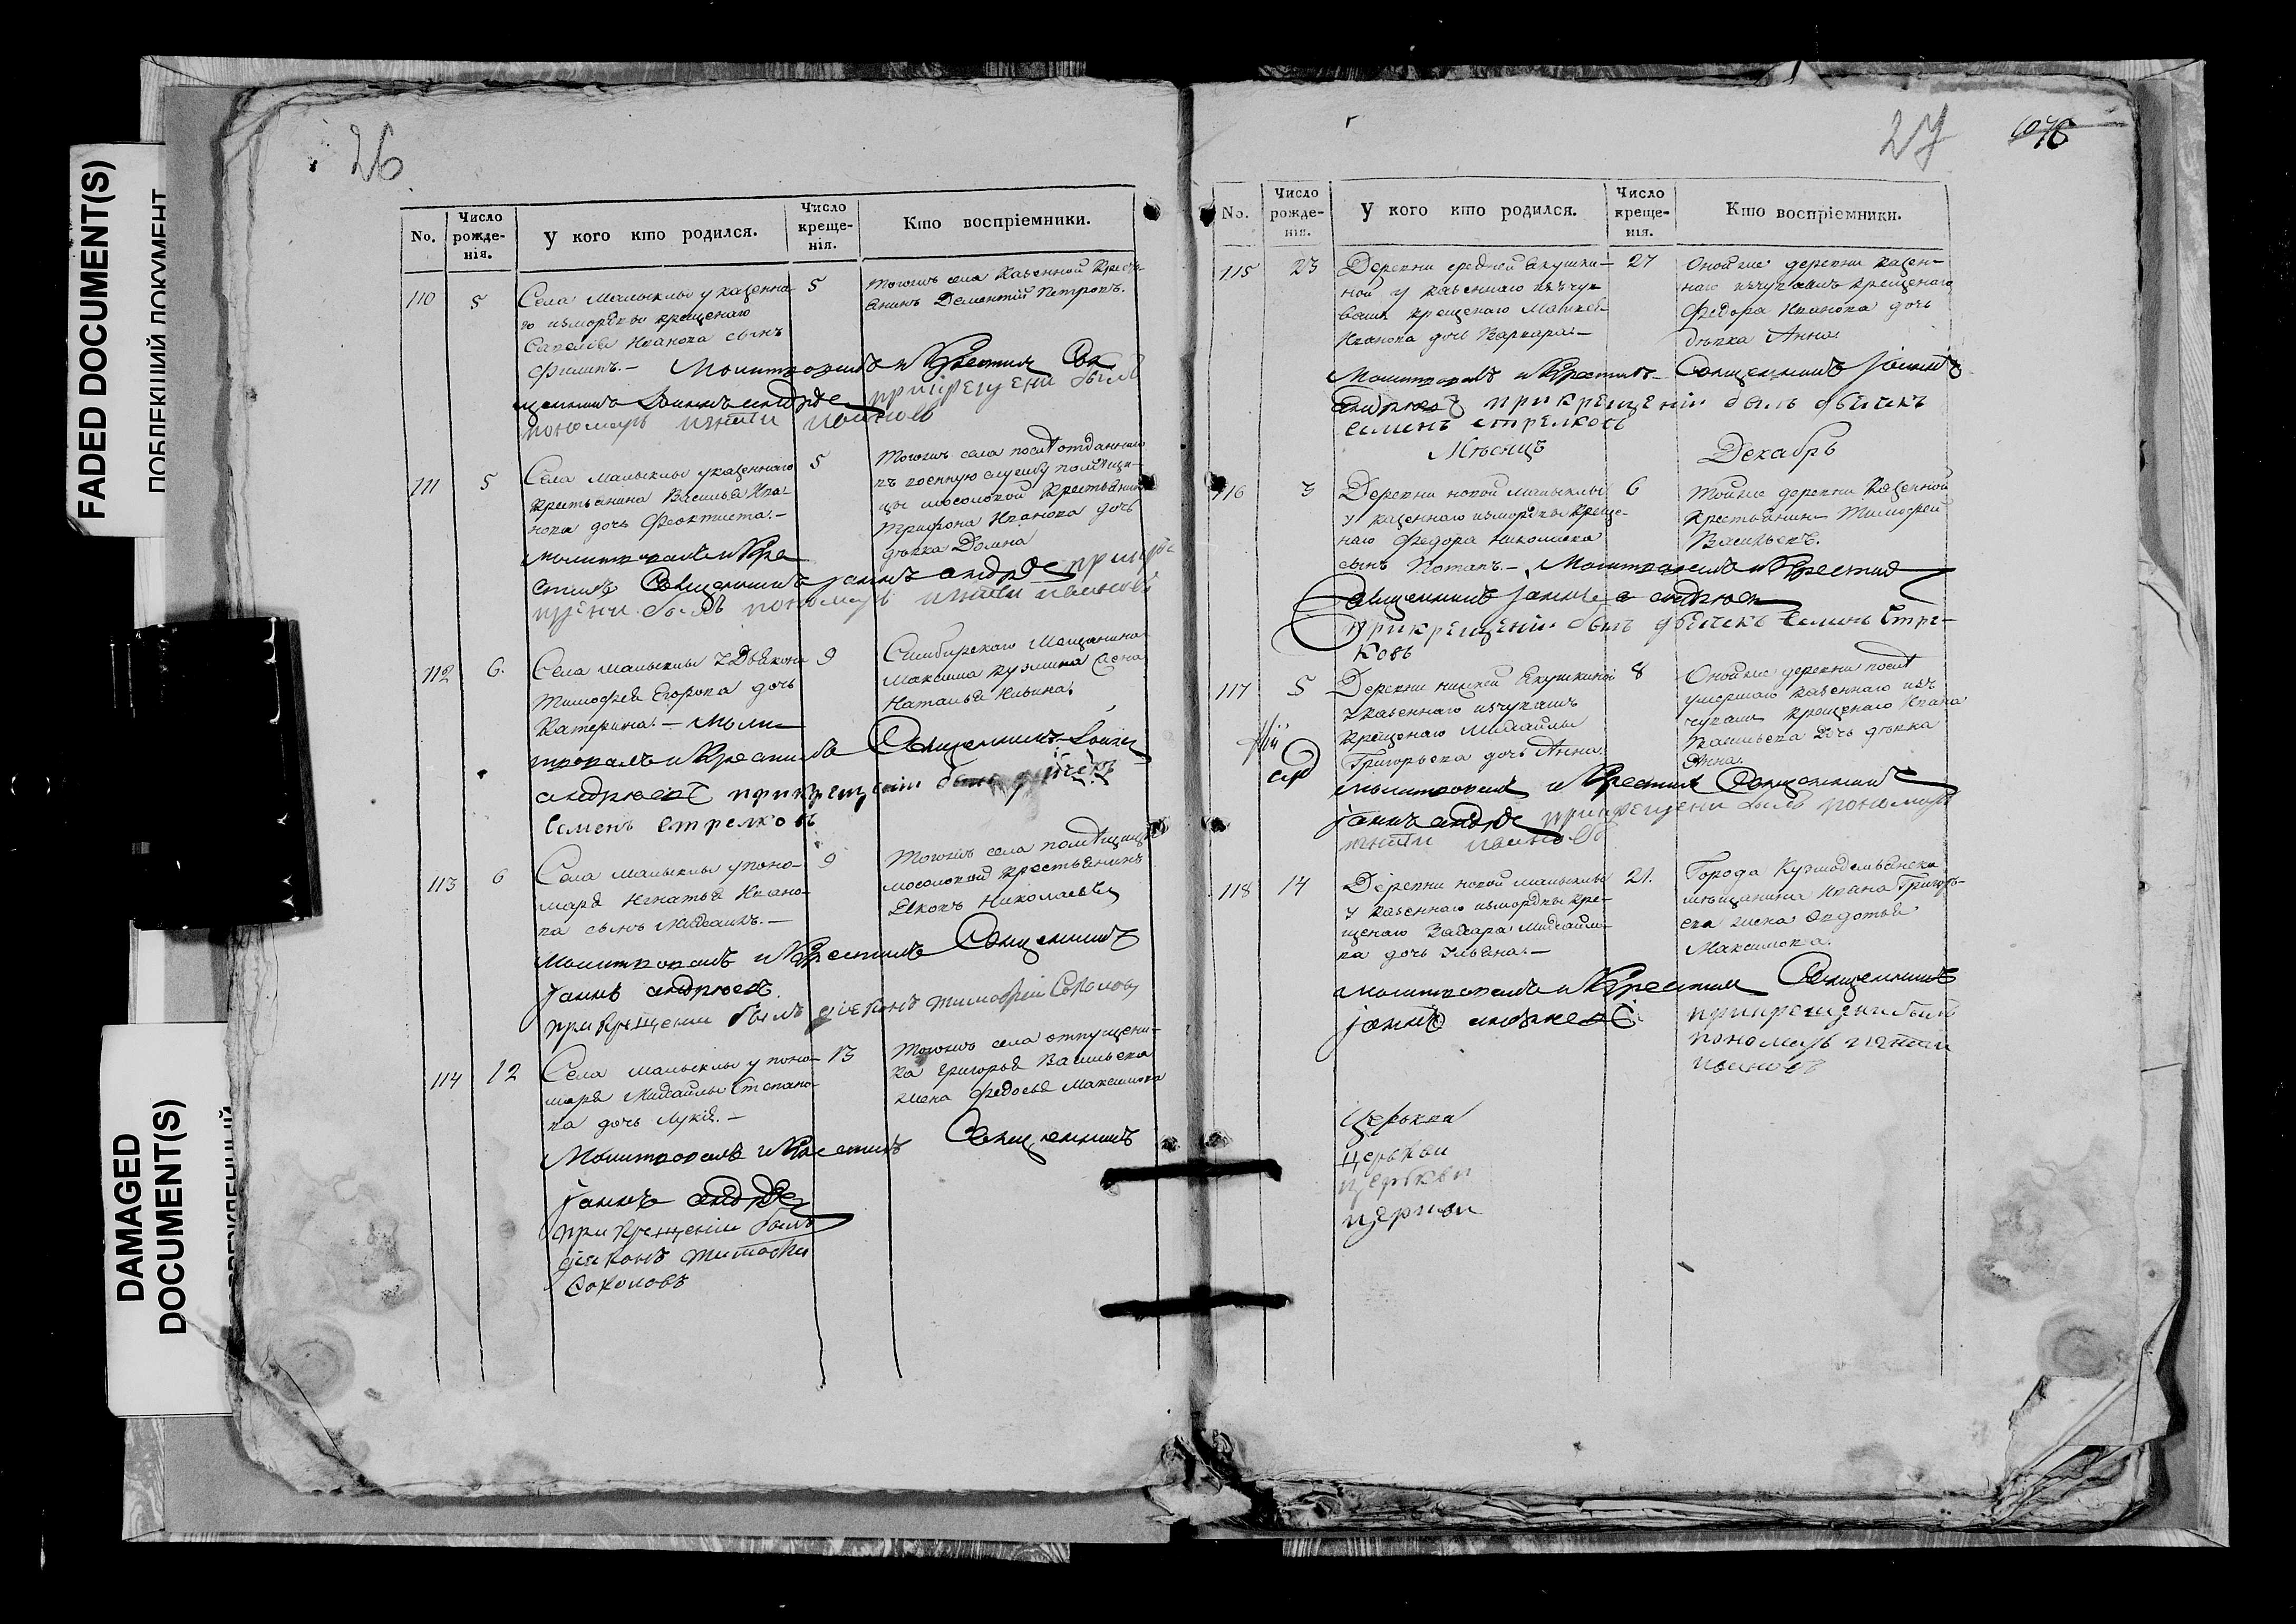 FADED DOCUMENT(S)
ПОБЛЕКШИЙ ДОКУМЕНТ
DAMAGED
DOCUMENT(S)
26
No.
Число рожде-нія.
У кого кто родился.
Число креще-нія.
Кто воспріемники.
110 5 5
Села Малыклы у казенна
го изъ мордвы крещенаго
Савелія Иванова сынъ
Филипъ. – Молитвовалъ и Крестилъ Свя
щенникъ Іоаннъ Андре при крещени былъ
пономарь Игнатій Ивановъ
Тогожъ села Казенной Кресть
янинъ Дементій Петровъ.
111 5 5
Села Малыклы у казеннаго
крестьянина Василья Ива
нова дочь Феоктиста. –
Молитвовалъ и Кре
стилъ Священникъ Іоаннъ Андре при кре
щени былъ пономарь Игнатій Ивановъ
Тогожъ села после отданнаго
въ военную службу помещи-
цы Мосоловой Крестьянина
Трифона Иванова дочь
девка Домна
112 6 9
Села Малыклы у Дьякона
Тимофея Егорова дочь
Катерина. – Моли
твовалъ и Крестилъ Священникъ Іоаннъ
Андреевъ при крещеніи былъ дьячекъ
Семенъ Стрелковъ
Симбирскаго Мещанина
Максима Кузмина жена
Наталья Ильина.
113 6 9
Села Малыклы у поно-
маря Игнатья Ивано-
ва сынъ Михаилъ. –
Молитвовалъ и Крестилъ Священникъ
Іоаннъ Андреевъ
при крещении былъ діаконъ Тимофей Соколовъ
Тогожъ села помещицы
Мосоловой Крестьянинъ
Яковъ Николаевъ
114 12 13
Села Малыклы у поно-
маря Михайлы Степано-
ва дочь Лукія. –
Молитвовалъ и Крестилъ Священникъ
Іоаннъ Андре
при крещеніи былъ
діаконъ Тимофей
Соколовъ
Тогожъ села отпущени-
ка Григорья Васильева
жена Федосья Максимова
27
No.
Число рожде-нія.
У кого кто родился.
Число креще-нія.
Кто воспріемники.
115 23 27
Деревни средней Якушки-
ной у казеннаго изъ чув
вашъ крещенаго Матвея
Иванова дочь Варвара. –
Молитвовалъ и Крестилъ Священникъ Іоаннъ
Андреевъ при крещеніи былъ дьячекъ
Семенъ Стрелковъ
Оной же деревни казен-
наго изъ чувашъ крещенаго
Федора Иванова дочь
девка Анна.
Месяцъ Декабрь
116 3 6
Деревни новой Малыклы
у казеннаго изъ мордвы креще-
наго Федора Николаева
сынъ Потапъ. – Молитвовалъ и Крестилъ
Священникъ Іоаннъ Андреевъ
при крещеніи былъ дьячекъ Семенъ Стрел-
ковъ
Той же деревни Казенной
Крестьянинъ Тимофей
Васильевъ.
117 5 8
Деревни нижней Якушкиной
у казеннаго изъ чувашъ
крещенаго Михайлы
Григорьева дочь Анна.
Молитвовалъ и Крестилъ Священникъ
Іоаннъ Андре при крещени былъ пономарь
Игнатій Ивановъ
Оной же деревни после
умершаго казеннаго изъ
чувашъ крещенаго Ивана
Васильева дочь девка
Анна.
118 14 21.
Деревни новой Малыклы
у казеннаго изъ мордвы кре-
щенаго Захара Михайло-
ва дочь Ульяна. –
Молитвовалъ и Крестилъ Священникъ
Іоаннъ Андреевъ
Города Кузмодемьянска
мещанина Ивана Григорь-
ева жена Авдотья
Максимова.
при крещени былъ
пономарь Игнатій
Ивановъ
Церькви
церькви
церькви
церкви